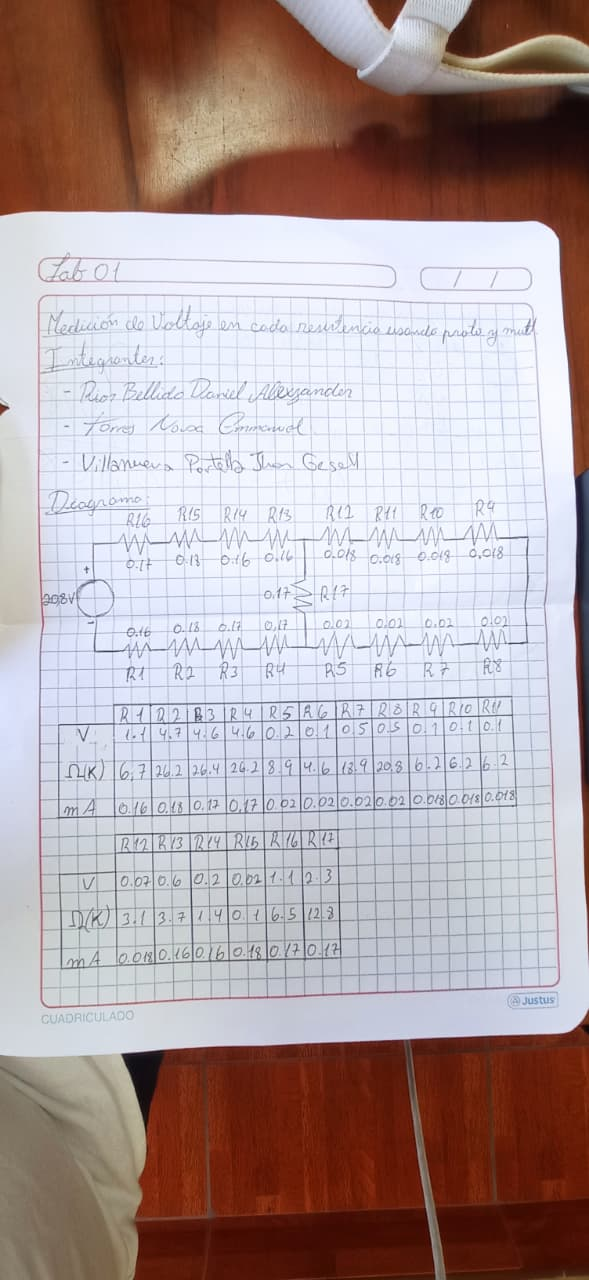 Lab 01
/ /
Medición de Voltaje en cada resistencia usando proto y mult.
Integrantes:
- Rios Bellido Daniel Alexzander
- Torres Emmanuel
- Villanueva Portella Jhon Gesell
Diagrama:
R16 R15 R14 R13 R12 R11 R10 R9
0.17 0.18 0.16 0.16 0.018 0.018 0.018 0.018
+
20,8V
-
0.17 R17
0.16 0.18 0.17 0,17 0.02 0.02 0.02 0.02
R1 R2 R3 R4 R5 R6 R7 R8
R1 R2 R3 R4 R5 R6 R7 R8 R9 R10 R11
V 1.1 4.7 4.6 4.6 0.2 0.1 0.5 0.5 0.1 0.1 0.1
Ω(K) 6,7 26.2 26.4 26.2 8.9 4.6 18.9 20.8 6.2 6.2 6.2
mA 0.16 0.18 0.17 0,17 0.02 0.02 0.02 0.02 0.018 0.018 0.018
R12 R13 R14 R15 R16 R17
V 0.07 0.6 0.2 0.02 1.1 2.3
Ω(K) 3.1 3.7 1.4 0.1 6.5 12.8
mA 0.018 0.16 0.16 0.18 0.17 0.17
Justus
CUADRICULADO